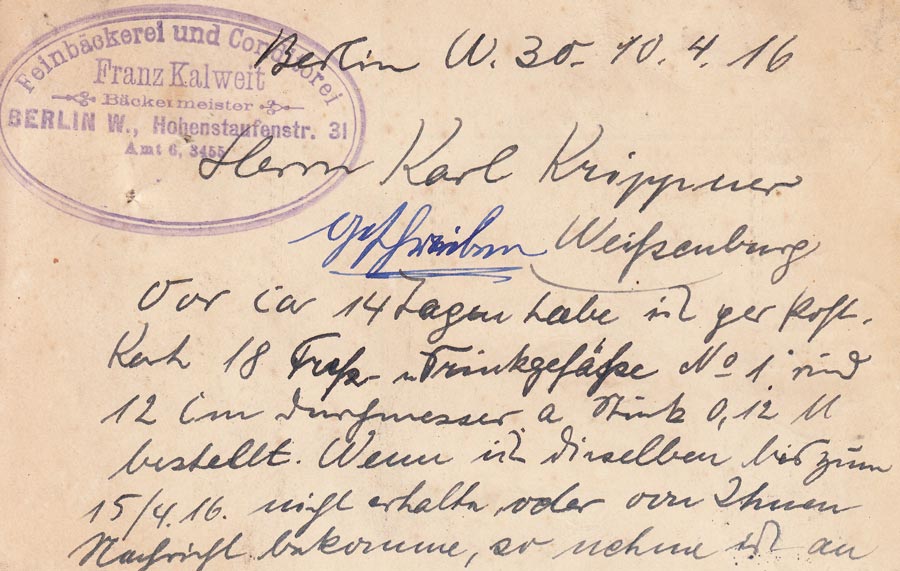 Feinbäckerei und Conditorei
Franz Kalweit
Bäckermeister
BERLIN W., Hohenstaufenstr. 31
Amt 6, 3455
Berlin W. 30. 10.4.16
Herrn Karl Krippner
geschrieben Weißenburg
Vor ca 14 Tagen habe ich per Post-
Kart 18 Freß- u Trinkgefäße No 1 rund
12 cm Durchmesser a Stück 0,12 M
bestellt. Wenn ich dieselben bis zum
15/4.16. nicht erhalte, oder von Ihnen
Nachricht bekomme, so nehme ich an